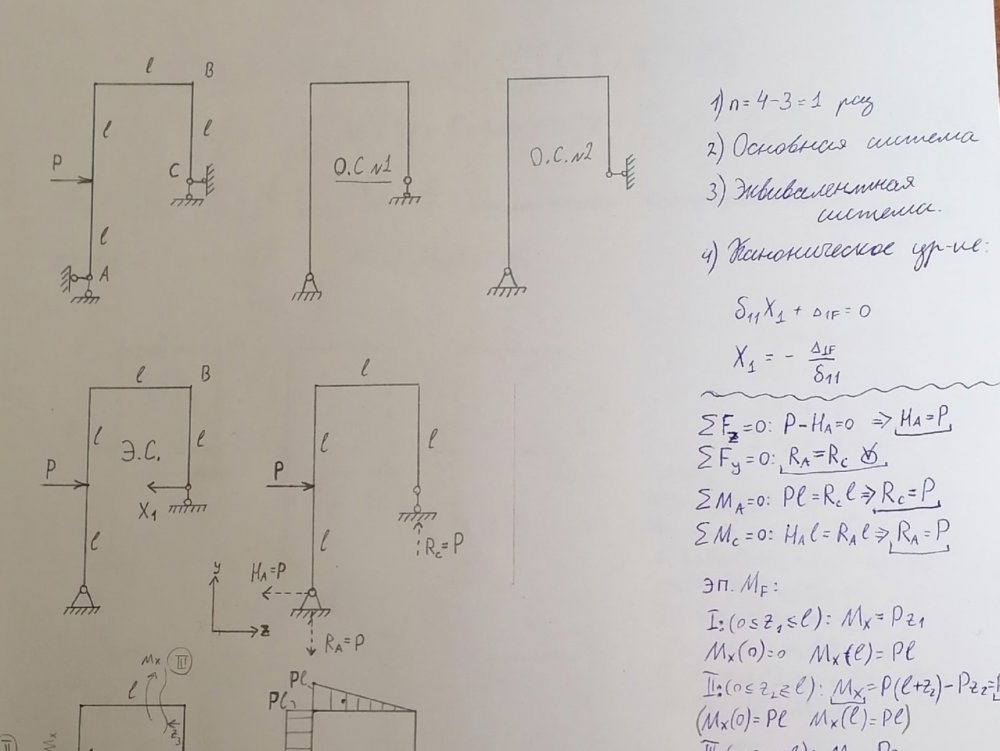 l B
l l
P C
О.С.№1
О.С.№2
l
A
1) n = 4-3 = 1 раз
2) Основная система
3) Эквивалентная
система.
4) Каноническое ур-ие:
δ11X1 + Δ1F = 0
X1 = - Δ1F
δ11
l B l
l Э.С. l l l
P X1 P
l l
Rc=P
HA=P
y
z
RA=P
ΣFz=0: P-HA=0 ⇒ HA=P
ΣFy=0: RA=Rc
ΣMA=0: Pl=Rc l ⇒ Rc=P
ΣMc=0: HA l = RA l ⇒ RA=P
эп. MF:
I: (0≤z1≤l): Mx = Pz1
Mx(0)=0 Mx(l)=Pl
II: (0≤z2≤l): Mx=P(l+z2)-Pz2=
(Mx(0)=Pl Mx(l)=Pl)
Mx III
l
Pl
Pl
Mx